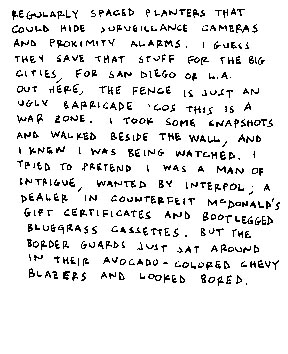 REGULARLY SPACED PLANTERS THAT
COULD HIDE SURVEILLANCE CAMERAS
AND PROXIMITY ALARMS. I GUESS
THEY SAVE THAT STUFF FOR THE BIG
CITIES, FOR SAN DIEGO OR L.A.
OUT HERE, THE FENCE IS JUST AN
UGLY BARRICADE 'COS THIS IS A
WAR ZONE. I TOOK SOME SNAPSHOTS
AND WALKED BESIDE THE WALL, AND
I KNEW I WAS BEING WATCHED. I
TRIED TO PRETEND I WAS A MAN OF
INTRIGUE, WANTED BY INTERPOL, A
DEALER IN COUNTERFEIT McDONALD'S
GIFT CERTIFICATES AND BOOTLEGGED
BLUEGRASS CASSETTES. BUT THE
BORDER GUARDS JUST SAT AROUND
IN THEIR AVOCADO-COLORED CHEVY
BLAZERS AND LOOKED BORED.